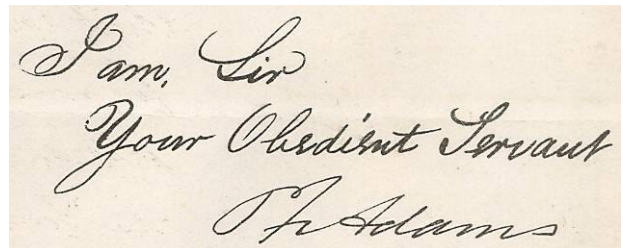 I am, Sir
Your Obedient Servant
Adams